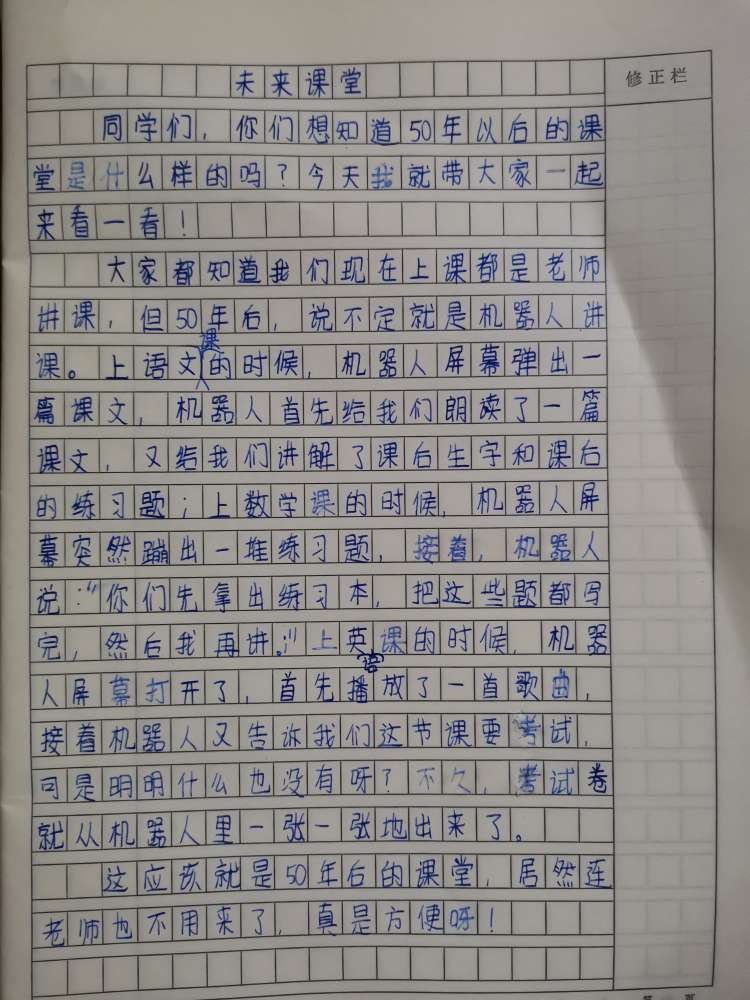 未来课堂
修正栏
同学们，你们想知道50年以后的课
堂是什么样的吗？今天我就带大家一起
来看一看！
大家都知道我们现在上课都是老师
讲课，但50年后，说不定就是机器人讲
课。上语文课的时候，机器人屏幕弹出一
篇课文，机器人首先给我们朗读了一篇
课文，又给我们讲解了课后生字和课后
的练习题；上数学课的时候，机器人屏
幕突然蹦出一堆练习题，接着，机器人
说：“你们先拿出练习本，把这些题都写
完，然后我再讲。”上英语课的时候，机器
人屏幕打开了，首先播放了一首歌曲，
接着机器人又告诉我们这节课要考试，
可是明明什么也没有呀？不久，考试卷
就从机器人里一张一张地出来了。
这应该就是50年后的课堂，居然连
老师也不用来了，真是方便呀！